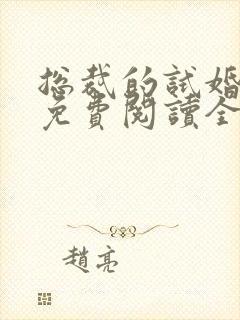 总裁的試婚
免費閱讀全
趙亮